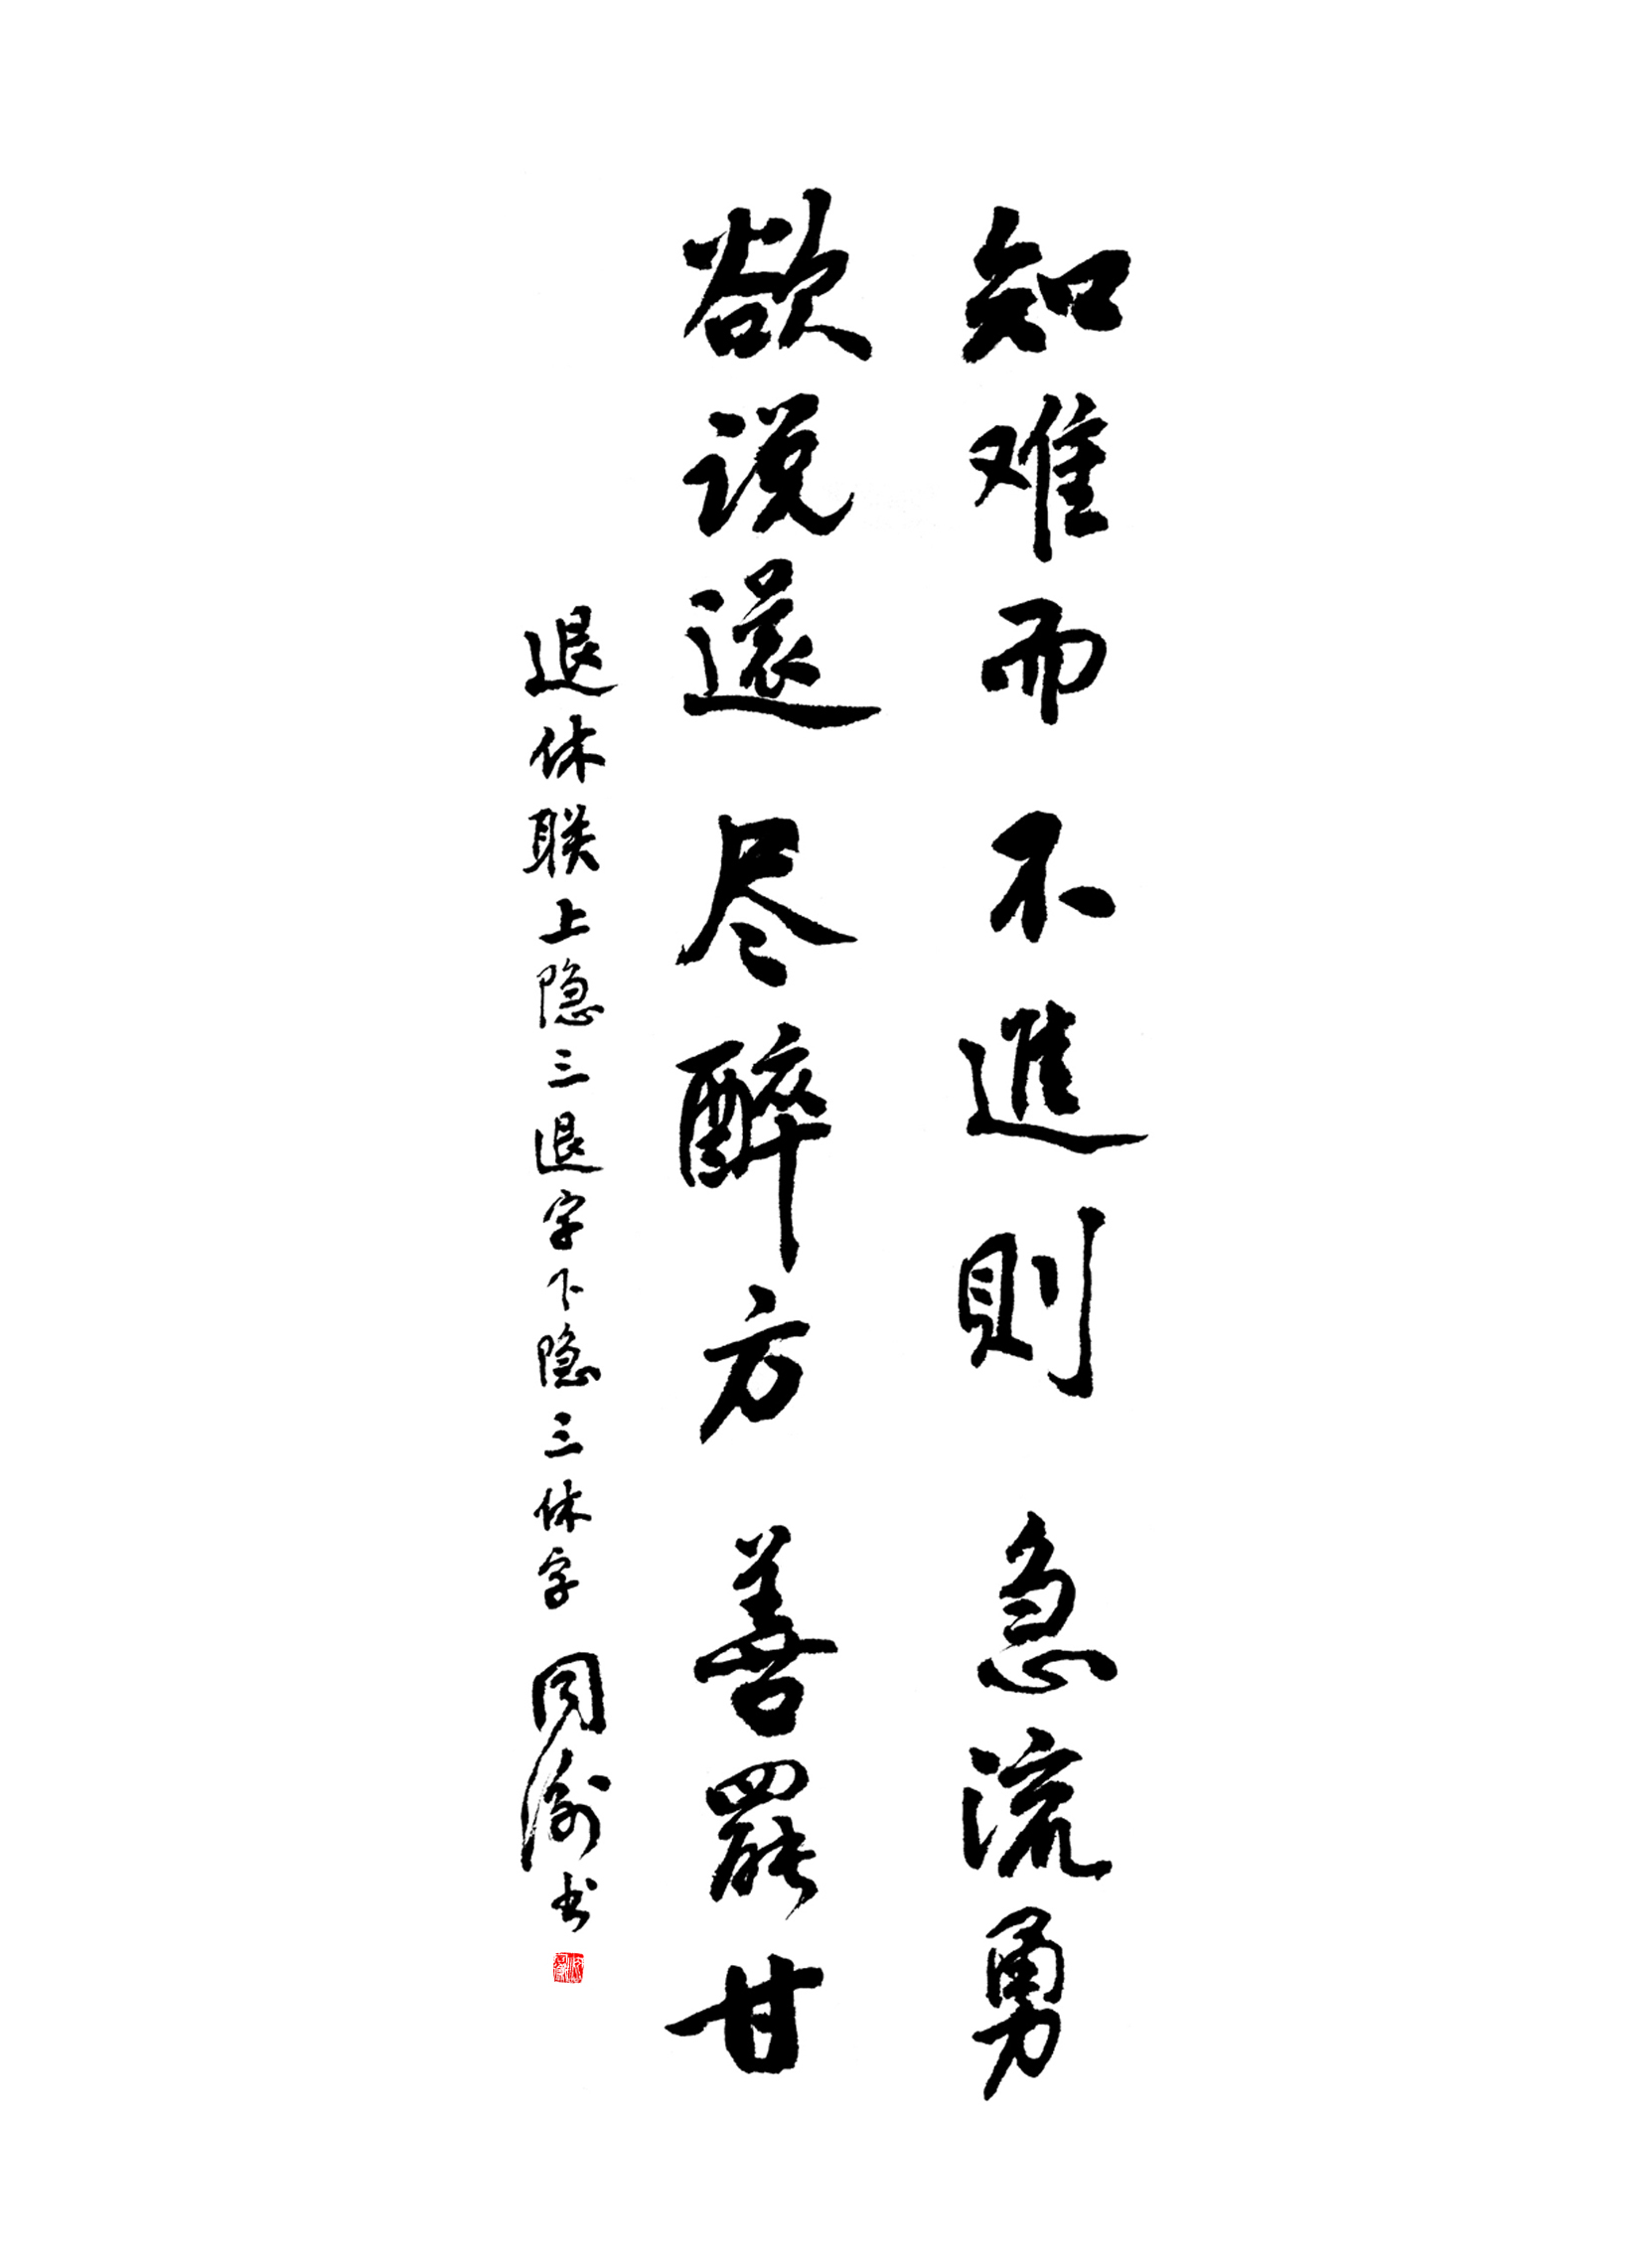 知难而不進則急流勇
欲说還尽醉方善罷甘
退休联上隐三退字下隐三休字 书